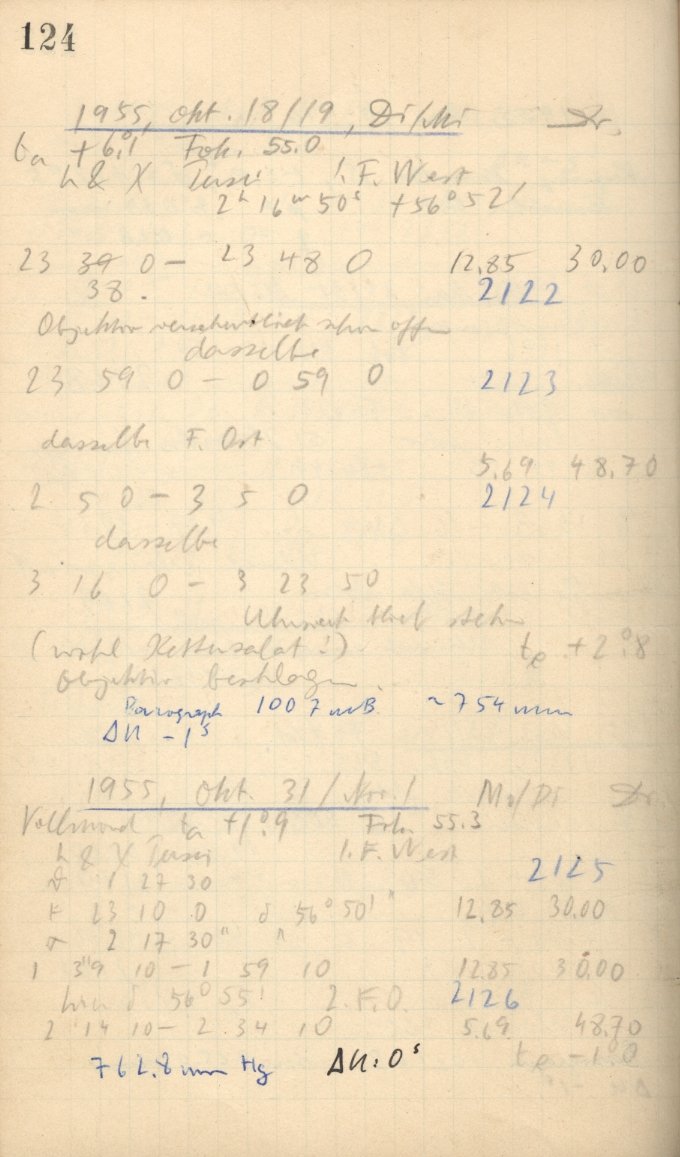 124
1955, Okt. 18/19, Di/Mi Dr.
ta +6°.1 Fok. 55.0
h & χ Persei 1. F. West
2h 16m 50s +56° 52'
23 39 0 – 23 48 0 12.85 30.00
38. 2122
Objektiv versehentlich schon offen
dasselbe
23 59 0 – 0 59 0 2123
dasselbe F. Ost
5.69 48.70
2 5 0 – 3 5 0 2124
dasselbe
3 16 0 – 3 23 50
Uhrwerk blieb stehen
(wohl Kettensalat!) te +2°.8
Objektiv beschlagen.
Barograph 1007 mB ~754 mm
ΔU –1s
1955, Okt. 31/Nov. 1 Mo/Di Dr.
Vollmond ta +1°.9 Fok. 55.3
h & χ Persei 1. F. West
1 27 30 2125
23 10 0 δ 56° 50' " 12.85 30.00
2 17 30 " "
1 39 10 – 1 59 10 12.85 30.00
δ 56° 55' 2. F. O. 2126
2 14 10 – 2 34 10 5.69 48.70
te –1.0
762.8 mm Hg ΔU: 0s